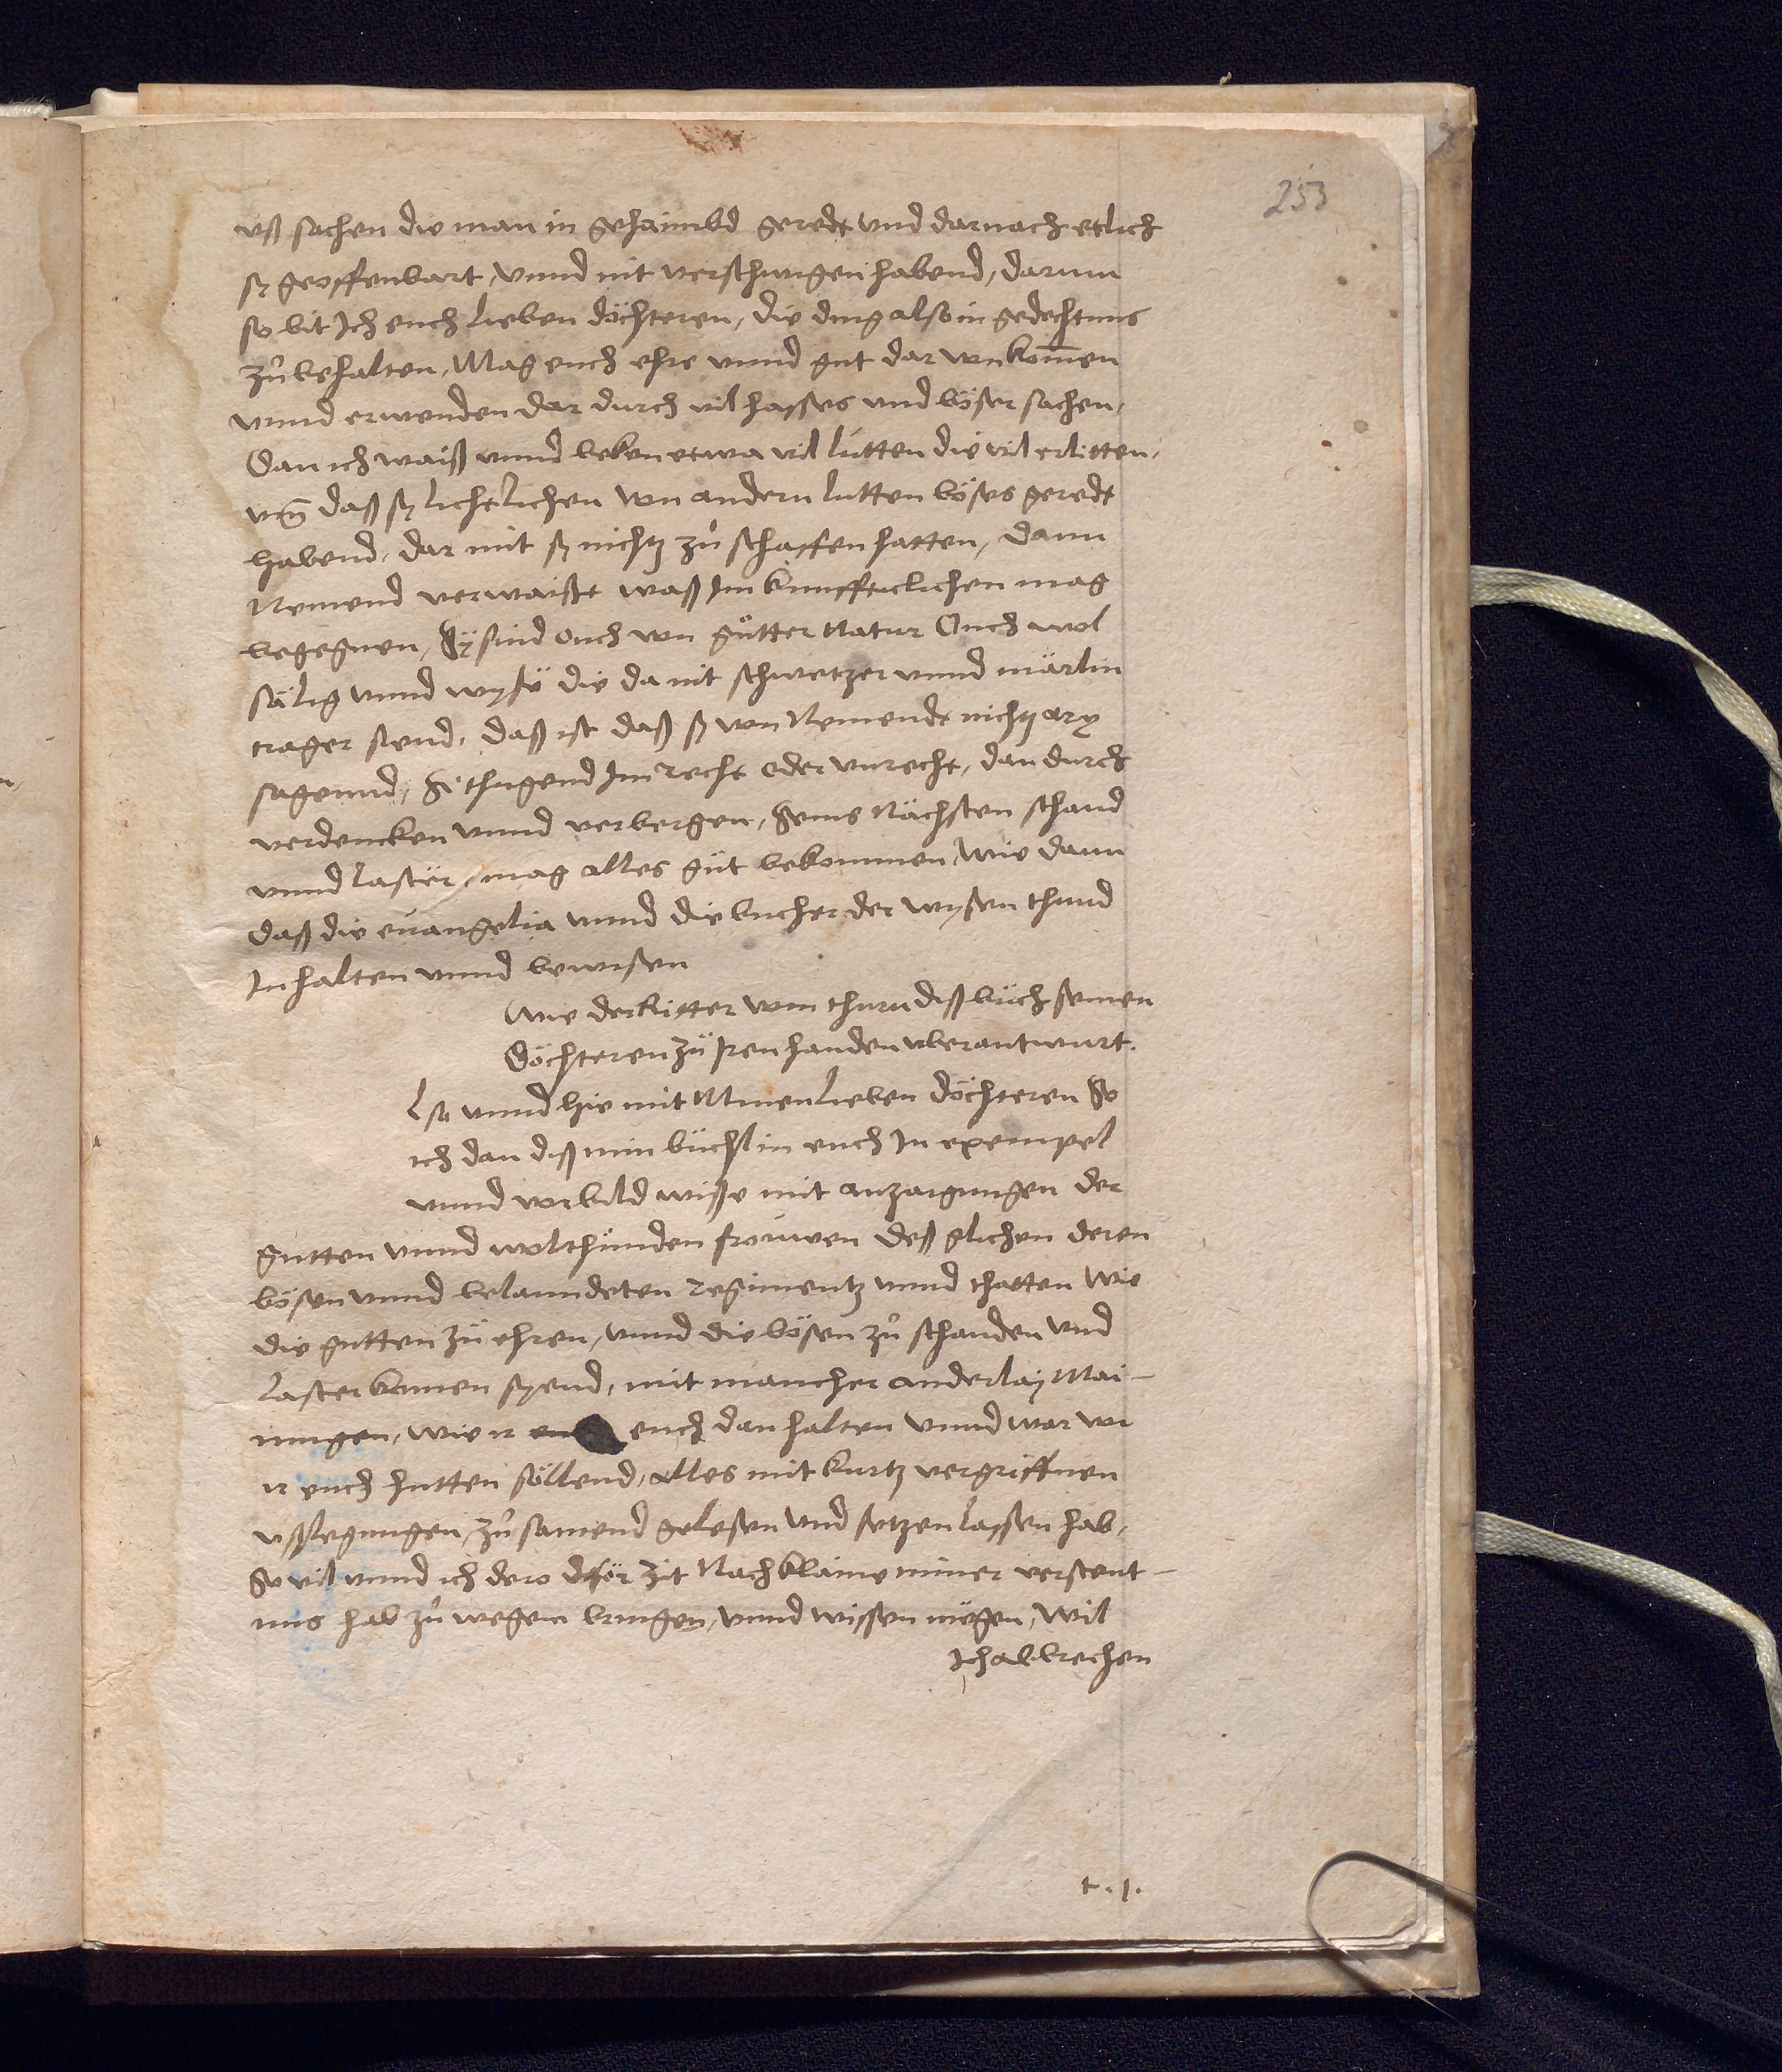 253
uß sachen die man in gehaimbd geredt vnd darnach etlich
sy geoffenbart, vnnd nit verschwigen habend, darum
so bit Ich euch lieben döchteren, die ding also in gedechtnus
zů behalten, Mag euch ehre vnnd gut dar von komen
vnnd erwenden dar durch vil hasses vnd böser sachen,
Dan ich waiß vnnd beken etwa vil lutten die vil erlitten,
vm daß sy lichtlichen von andern lutten böses geredt
habend, dar mit sy nichtz zů schaffen hatten, dann
Nemend verwaißt waß Im kunffticlichen mag
begegnen, Sy sind ouch von gůtter Natur Ouch wol
sälig vnnd wyse die da nit schwetzer vnnd märlin
trager siend, daß ist daß sy von Nemendt nichtz arg
sagennd, Si thugend Im recht oder vnrecht, dan durch
verdencken vnnd verbergen, Seins Nächsten schand
vnnd laster, mag alles gůt bekommen, wie dann
daß die euangelia vnnd die bucher der wysen thund
Inhalten vnnd bewisen
Wie der Ritter vom thurn diß bůch seinen
Döchteren zů Iren handen vberantwurt.
Lso vnnd hie mit Minen lieben döchteren So
ich dan diß min bůchlin euch In exempel
vnnd vorbild wiße mit anzaigungen der
gutten vnnd wolthunden frouwen deß glichen deren
bösen vnnd belaumdeten regimentz vnnd thatten wie
die gutten zů ehren, vnnd die bösen zů schanden vnd
laster kumen syend, mit mancher anderlaÿ Mai-
nungen, wie ir euch dan halten vnnd war vor
ir euch hutten söllend, alles mit kurtz vergriffnen
vßlegungen, zů samend gelesen vnd setzen lassen hab,
So vil vnnd ich dero diser zit Nach klaine miner verstent-
nus hab zů wegen bringen, vnnd wissen mögen, wil
Ich abbrechen
t . j.